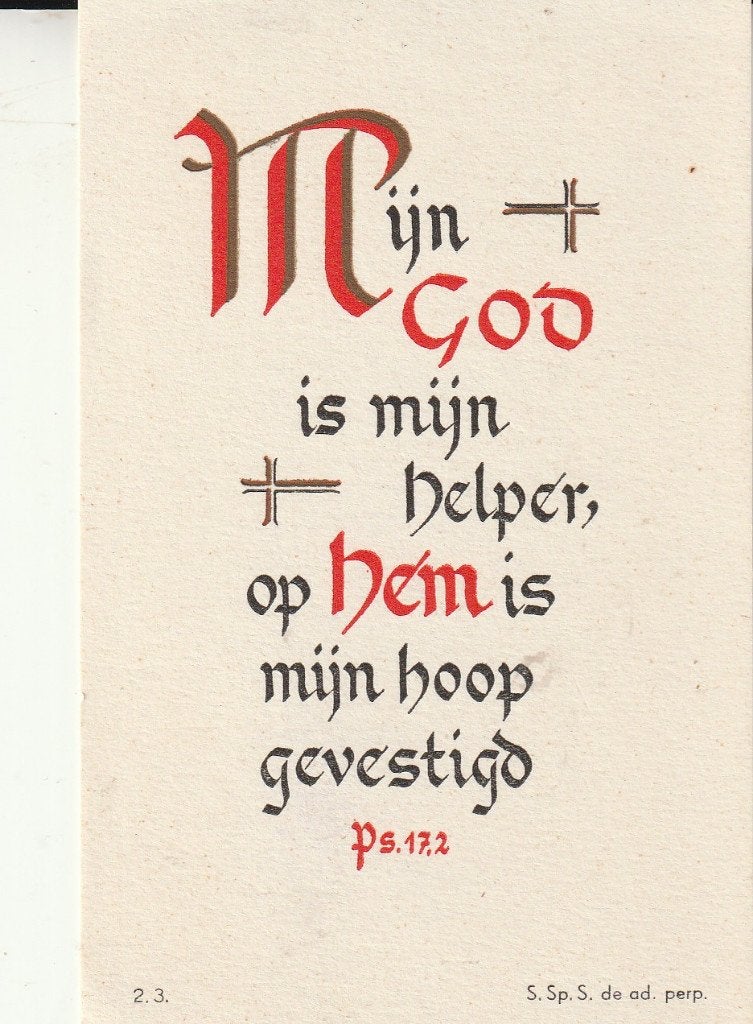 Mijn
God
is mijn
helper,
op hem is
mijn hoop
gevestigd
Ps. 17,2
2.3.
S. Sp. S. de ad. perp.